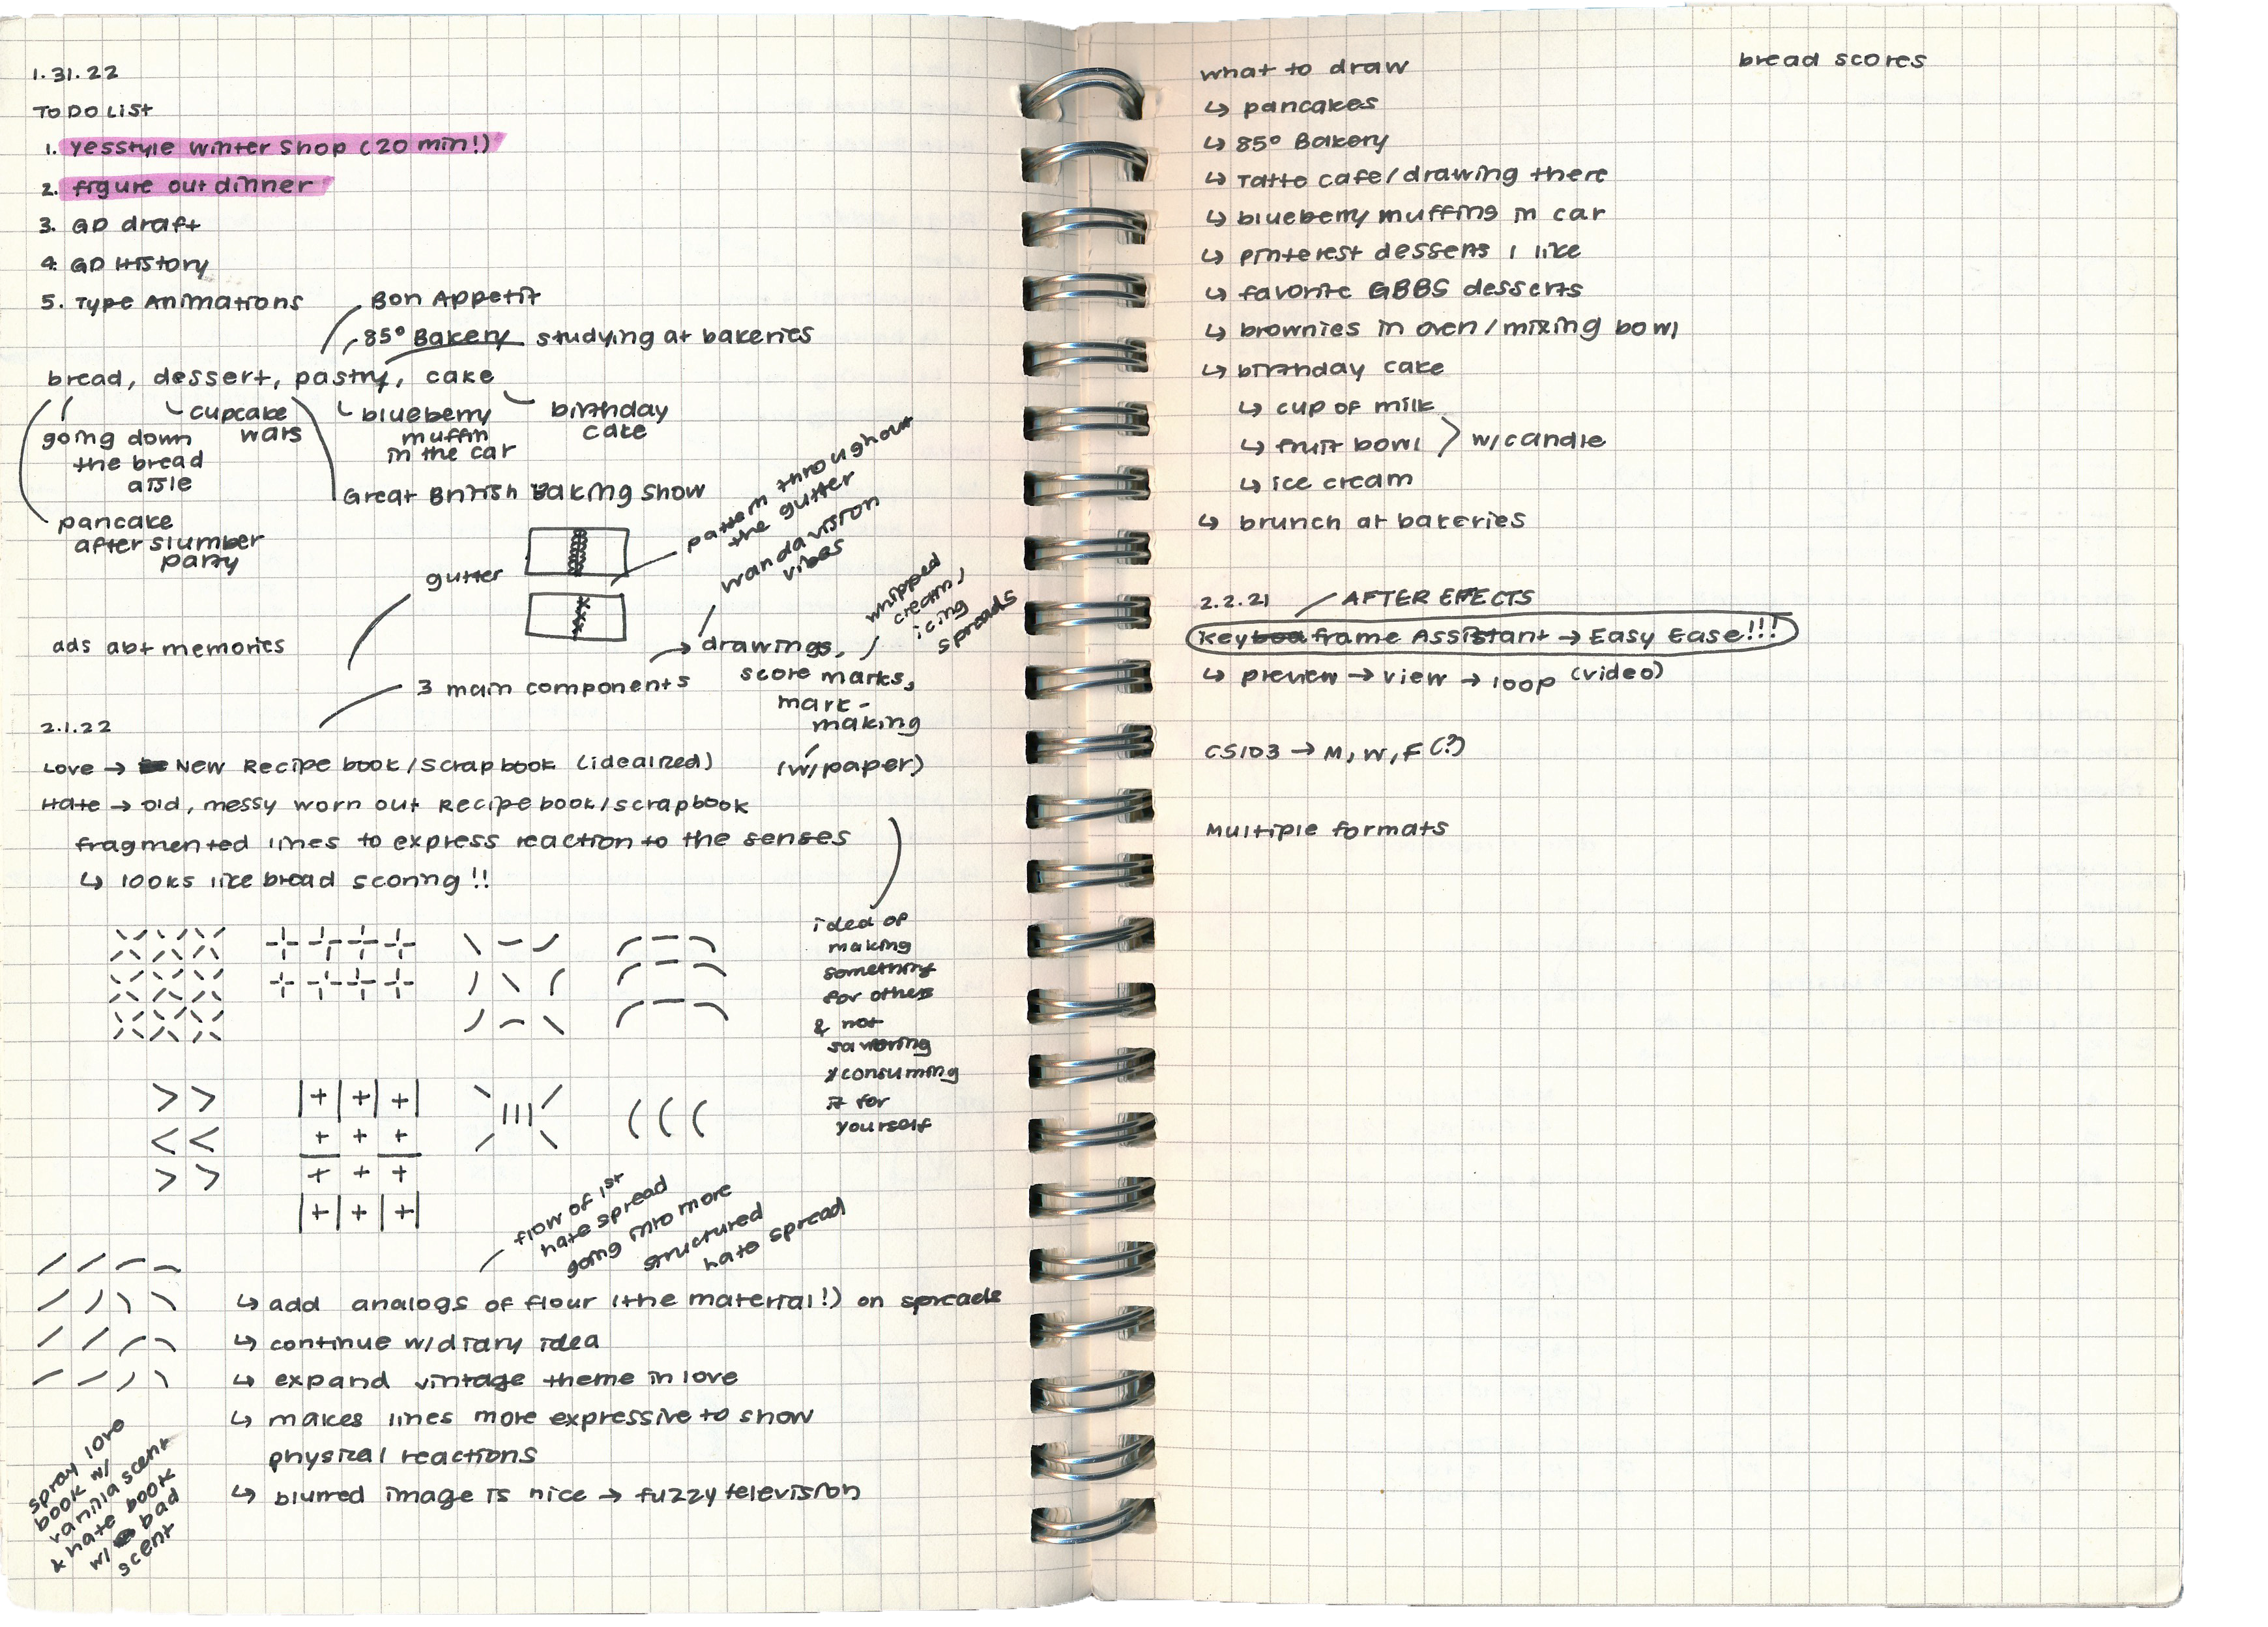 1.31.22
TO DO LIST
1. yesstyle winter shop (20 min!)
2. figure out dinner
3. GD draft
4. GD History
5. Type Animations
Bon Appetit
85° Bakery
studying at bakeries
bread, dessert, pastry, cake
cupcake
wars
blueberry
muffin
in the car
birthday
cake
going down
the bread
aisle
Great British Baking Show
pancake
after slumber
party
gutter
pattern throughout
the gutter
wandavision
vibes
whipped
cream,
icing
spreads
ads abt memories
3 main components
drawings,
score marks,
mark-
making
(w/paper)
2.1.22
Love → New Recipe book/scrapbook (idealized)
Hate → old, messy worn out Recipe book/scrapbook
fragmented lines to express reaction to the senses
↳ looks like bread scoring!!
idea of
making
something
for others
& not
savoring
consuming
it for
yourself
flow of 1st
hate spread
going into more
structured
hate spread
↳ add analogs of flour (the material!) on spreads
↳ continue w/diary idea
↳ expand vintage theme in love
↳ makes lines more expressive to show
physical reactions
↳ blurred image is nice → fuzzy television
spray love
book w/
vanilla scent
& hate book
w/ bad
scent
what to draw
↳ pancakes
↳ 85° Bakery
↳ Tatto cafe/drawing there
↳ blueberry muffing in car
↳ pinterest desserts I like
↳ favorite GBBS desserts
↳ brownies in oven/mixing bowl
↳ birthday cake
↳ cup of milk
↳ fruit bowl
w/candle
↳ ice cream
↳ brunch at bakeries
bread scores
2.2.21
AFTER EFFECTS
Keyboa frame Assistant → Easy Ease!!!
↳ preview → view → loop (video)
CS103 → M, W, F (?)
Multiple formats